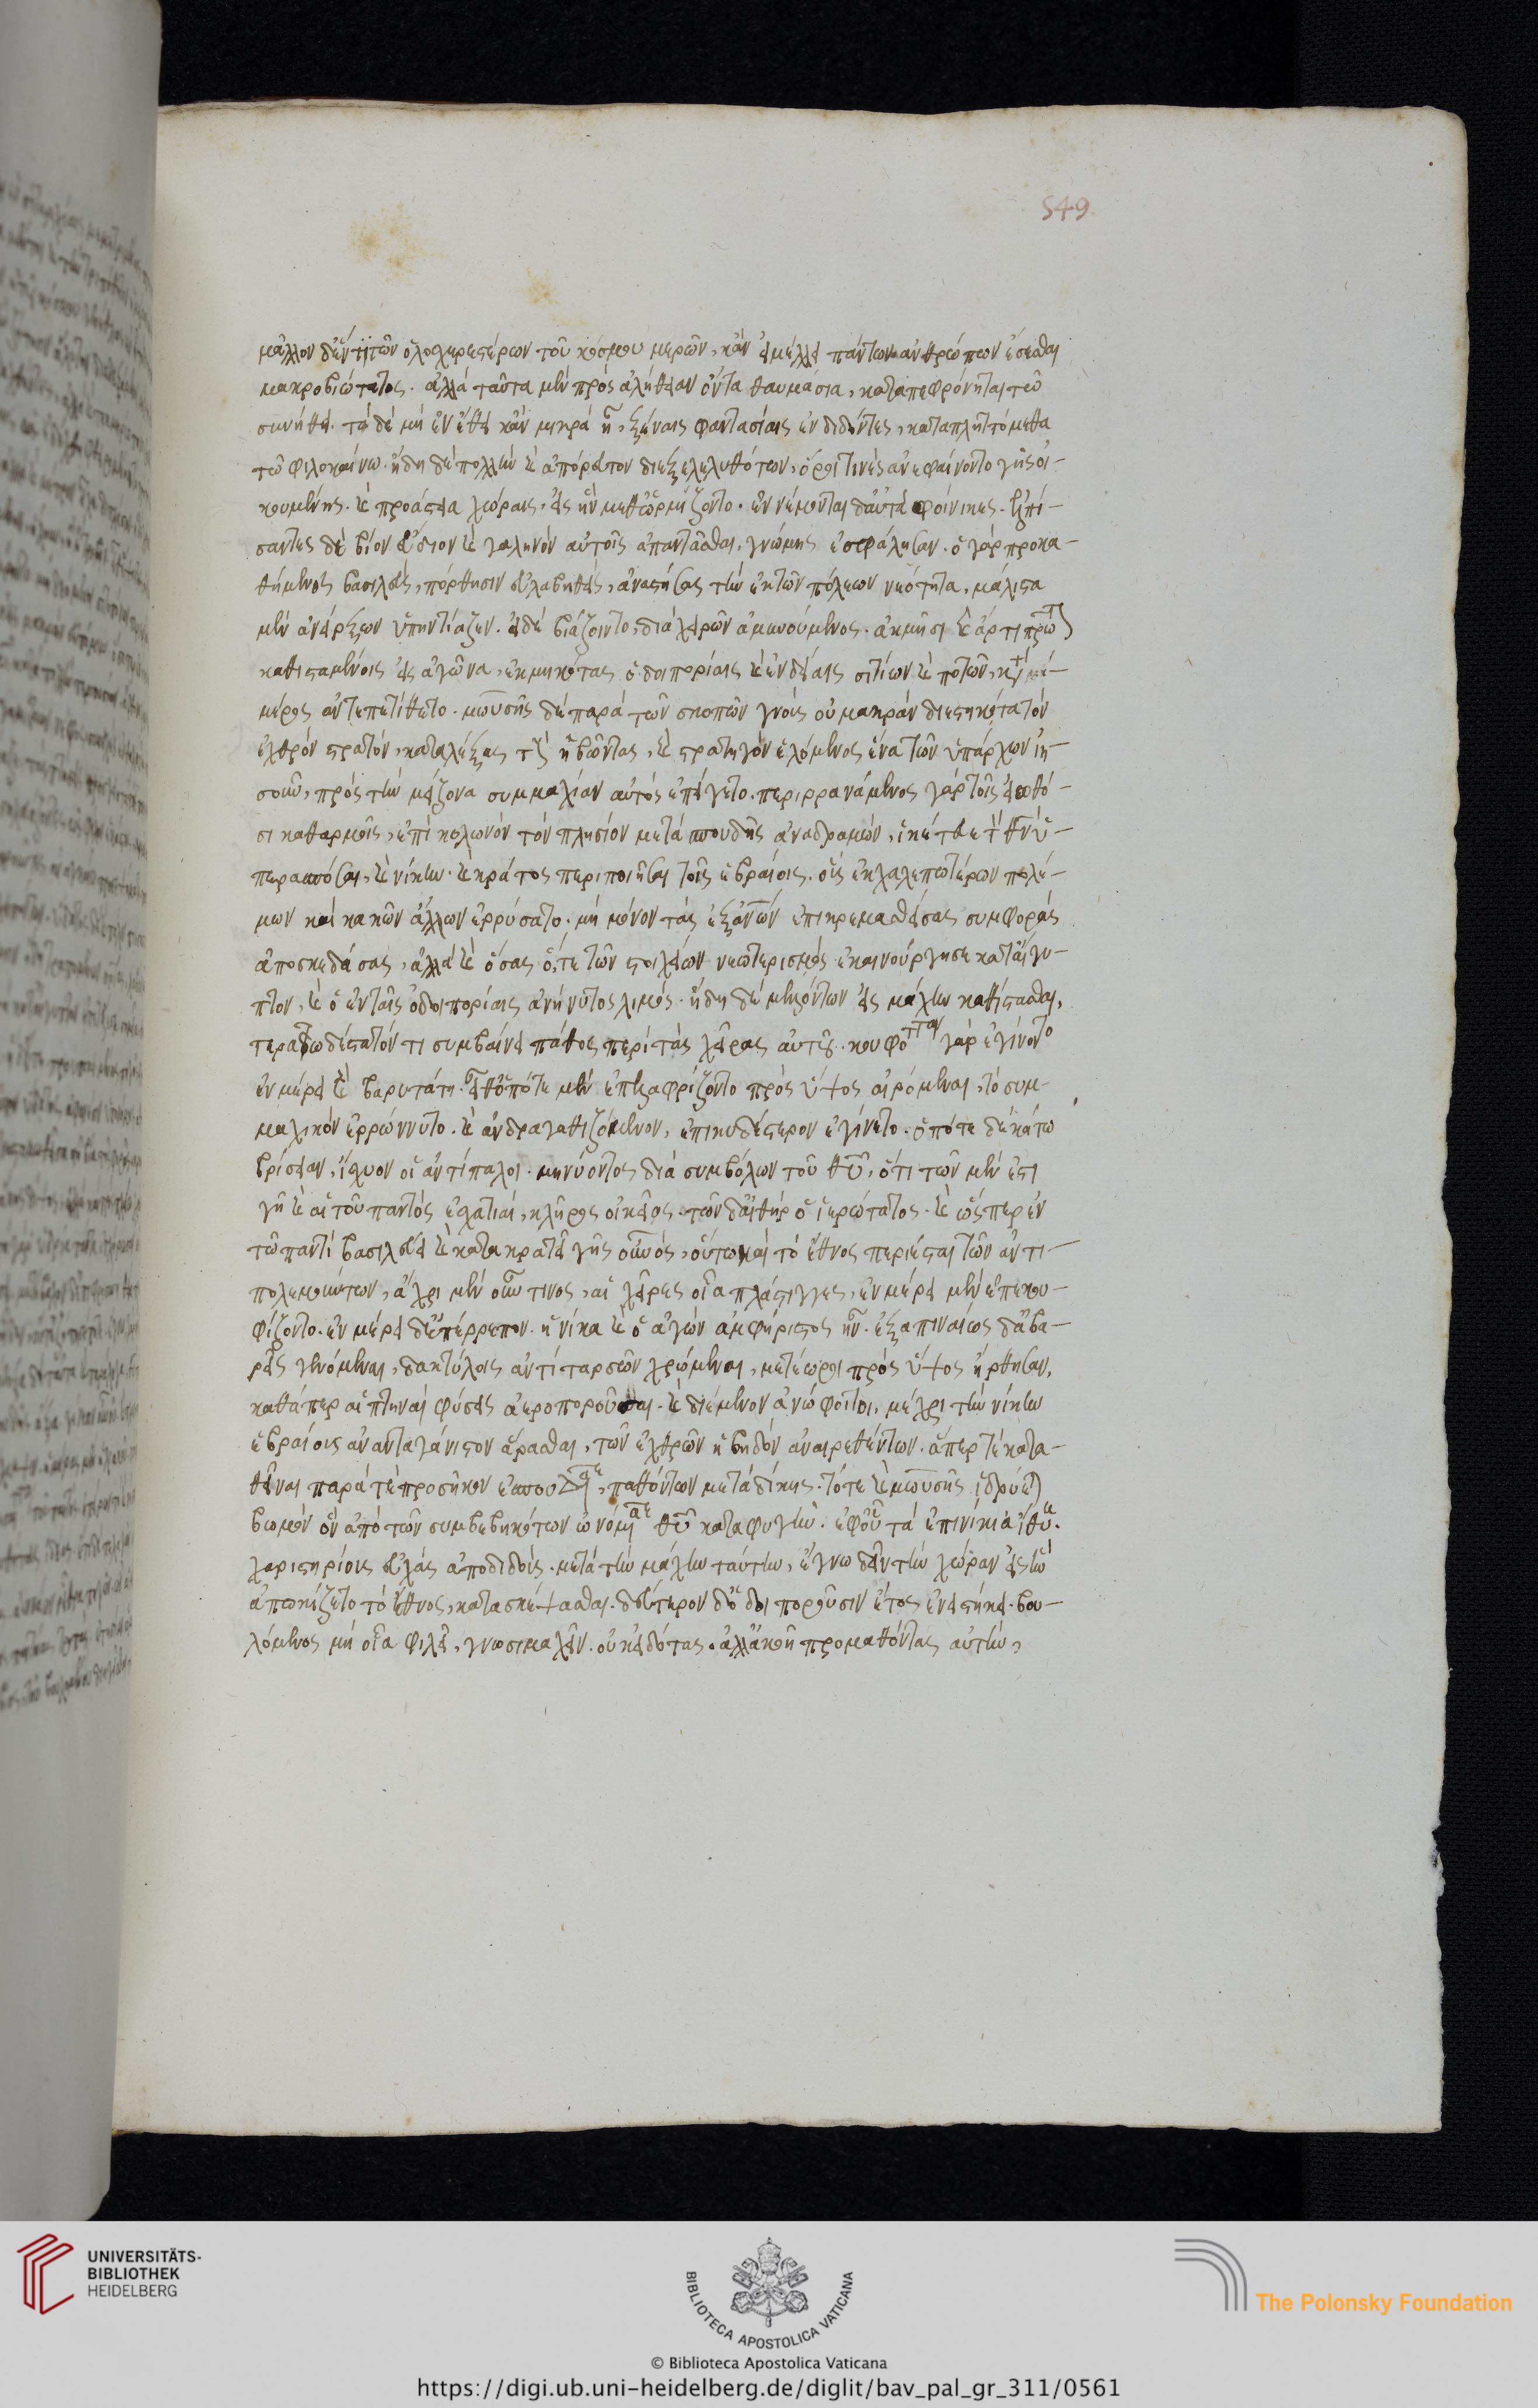 549
μᾶλλον δ' ἕν τι τῶν ὁλοσχερεστέρων τοῦ κόσμου μερῶν, κἂν εἰ μέλλει πάντων ἀνθρώπων ἔσεσθαι
μακροβιώτατος. ἀλλὰ ταῦτα μὲν πρὸς ἀλήθειαν ὄντα θαυμάσια, καταπεφρόνηται τῶ
συνήθει. τὰ δὲ μὴ ἐν ἔθει κἂν μικρὰ ἦ, ξέναις φαντασίαις ἐνδιδόντες, καταπληττόμεθα
τῶ φιλοκαίνω. ἤδη δὲ πολλὴν καὶ ἀπόρευτον διεξεληλυθότων, ὅροι τινὲς ἀνεφαίνοντο γῆς οἰ-
κουμένης. καὶ προάστεια χώρας, εἰς ἣν μεθωρμίζοντο. νέμονται δ' αὐτὰ φοίνικες. ἐλπί-
σαντες δὲ βίον εὔδιον καὶ γαληνὸν αὐτοῖς ἀπαντᾶσθαι, γνώμης ἐσφάλησαν. ὁ γὰρ προκα-
θήμενος βασιλεὺς, πόρθησιν εὐλαβηθεὶς, ἀναστήσας τὴν ἐκ τῶν πόλεων νεότητα, μάλιστα
μὲν ἀνείρξων ὑπηντίαζεν. εἰ δὲ βιάζοιντο, διὰ χειρῶν ἀμυνούμενος. ἀκμῆσι καὶ ἄρτι πρῶτ
καθισταμένοις εἰς ἀγῶνα, κεκμηκότας ὁδοιπορίαις καὶ ἐνδείαις σιτίων καὶ ποτῶν,
μέρος ἀντεπετίθετο. μωυσῆς δὲ παρὰ τῶν σκοπῶν γνοὺς οὐ μακρὰν διεστηκότα τὸν
ἐχθρὸν στρατὸν, καταλέξας τοὺς ἡβῶντας, καὶ στρατηγὸν ἑλόμενος ἕνα τῶν ὑπάρχων ἰη-
σοῦν, πρὸς τὴν μείζονα συμμαχίαν αὐτὸς ἐπείγετο. περιρρανάμενος γὰρ τοῖς εἰωθό-
σι καθαρμοῖς, ἐπὶ κολωνὸν τὸν πλησίον μετὰ σπουδῆς ἀναδραμὼν, ἱκέτευε τὸν θν ὑ-
περασπίσαι, καὶ νίκην καὶ κράτος περιποιῆσαι τοῖς ἑβραίοις. οὓς ἐκ χαλεπωτέρων πολέ-
μων καὶ κακῶν ἄλλων ἐρρύσατο. μὴ μόνον τὰς ἐξ ἀνων ἐπικρεμασθείσας συμφορὰς
ἀποσκεδάσας, ἀλλὰ καὶ ὅσας ὅ, τε τῶν στοιχείων νεωτερισμὸς ἐκαινούργησε κατ' αἴγυ-
πτον, καὶ ὁ ἐν ταῖς ὁδοιπορίαις ἀνήνυτος λιμός. ἤδη δὲ μελλόντων εἰς μάχην καθίστασθαι,
τερατωδέστατόν τι συμβαίνει πάθος περὶ τὰς χεῖρας αὐτοῦ. κουφόταται γὰρ ἐγίνοντο
ἐν μέρει καὶ βαρύταται. εἶθ' ὁπότε μὲν ἐπελαφρίζοντο πρὸς ὕψος αἰρόμεναι, τὸ συμ-
μαχικὸν ἐρρώννυτο. καὶ ἀνδραγαθιζόμενον, ἐπικυδέστερον ἐγίνετο. ὁπότε δὲ κάτω
βρίσειαν, ἴσχυον οἱ ἀντίπαλοι. μηνύοντος διὰ συμβόλων τοῦ θυ, ὅτι τῶν μέν ἐστι
γῆ καὶ αἱ τοῦ παντὸς ἐσχατιαὶ, κλῆρος οἰκεῖος. τῶν δ' αἰθὴρ ὁ ἱερώτατος. καὶ ὥσπερ ἐν
τῶ παντὶ βασιλεύει καὶ κατακρατεῖ γῆς οὐνὸς, οὕτω καὶ τὸ ἔθνος περιέσται τῶν ἀντι-
πολεμούντων, ἄχρι μὲν οὖν τινος, αἱ χεῖρες οἷα πλάστιγγες, ἐν μέρει μὲν ἐπεκου-
φίζοντο. ἐν μέρει δ' ἐπέρρεπον. ἡνίκα καὶ ὁ ἀγὼν ἀμφήριστος ἦν. ἐξαπιναίως δ' ἀβα-
ρεῖς γενόμεναι, δακτύλοις ἀντὶ ταρσῶν χρώμεναι, μετέωροι πρὸς ὕψος ἤρθησαν,
καθάπερ αἱ πτηναὶ φύσεις ἀεροποροῦσαι. καὶ διέμενον ἀνώφοιτοι, μέχρι τὴν νίκην
ἑβραίοις ἀνανταγώνιστον ἄρασθαι, τῶν ἐχθρῶν ἡβηδὸν ἀναιρεθέντων. ἅπερ τε κατα-
θεῖναι παρὰ τὸ προσῆκον ἐσπούδασε, παθόντων μετὰ δίκης. τότε καὶ μωυσῆς ἱδρύεται
βωμὸν ὃν ἀπὸ τῶν συμβεβηκότων ὠνόμασε θυ καταφυγήν. ἐφ' οὗ τὰ ἐπινίκια ἔθυε.
χαριστηρίους εὐχὰς ἀποδιδούς. μετὰ τὴν μάχην ταύτην, ἔγνω δεῖν τὴν χώραν εἰς ἣν
ἀπωκίζετο τὸ ἔθνος, κατασκέψασθαι. δεύτερον δ' ὁδοιποροῦσιν ἔτος ἐνειστήκει. βου-
λόμενος μὴ οἷα φιλεῖ, γνωσιμαχεῖν. οὐκ εἰδότας. ἀλλ' ἀκοῆ προμαθόντας αὐτὴν,
UNIVERSITÄTS-
BIBLIOTHEK
HEIDELBERG
BIBLIOTECA APOSTOLICA VATICANA
The Polonsky Foundation
© Biblioteca Apostolica Vaticana
https://digi.ub.uni-heidelberg.de/diglit/bav_pal_gr_311/0561